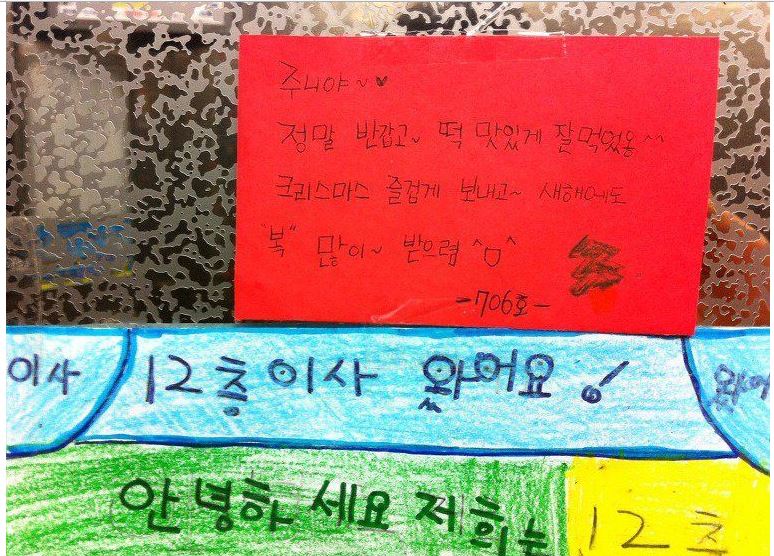 주니야~♥
정말 반갑고~ 떡 맛있게 잘먹었옹^^
크리스마스 즐겁게 보내고~ 새해에도
"복" 많이~ 받으렴 ^ㅁ^
-706호-
이사
12층이사 왔어요!
왔어
안녕하세요 저희는
12층